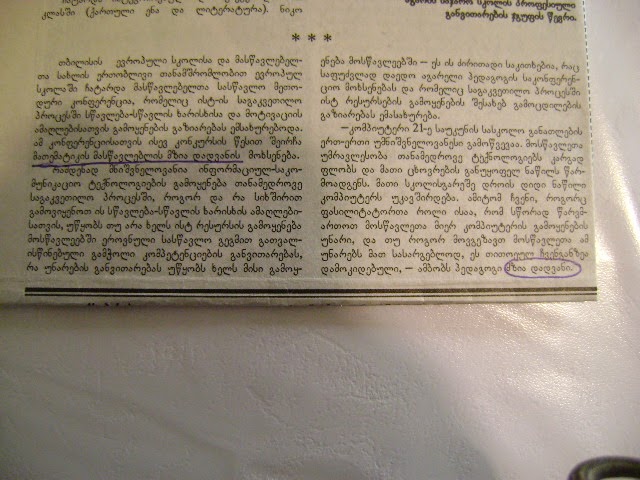 კლასში (ქართული ენა და ლიტერატურა). ნიკო
განვითარების ჯგუფის წევრი.
* * *
თბილისის ევროპული სკოლისა და მასწავლებელ-
თა სახლის ერთობლივი თანამშრომლობით ევროპულ
სკოლაში ჩატარდა მასწავლებელთა სასწავლო მეთო-
დური კონფერენცია, რომელიც ისტ-ის საგაკვეთილო
პროცესში სწავლება-სწავლის ხარისხისა და მოტივაციის
ამაღლებისათვის გამოყენების გაზიარებას ემსახურებოდა.
ამ კონფერენციისათვის ისევ კონკურსის წესით შეირჩა
მათემატიკის მასწავლებლის მზია დადვანის მოხსენება.
რამდენად მნიშვნელოვანია ინფორმაციულ-საკო-
მუნიკაციო ტექნოლოგიების გამოყენება თანამედროვე
საგაკვეთილო პროცესში, როგორ და რა სიხშირით
გამოვიყენოთ ის სწავლება-სწავლის ხარისხის ამაღლები-
სათვის, უწყობს თუ არა ხელს ისტ რესურსის გამოყენება
მოსწავლეებში ეროვნული სასწავლო გეგმით გათვალ-
ისწინებული გამჭოლი კომპეტენციების განვითარებას,
რა უნარების განვითარებას უწყობს ხელს მისი გამოყ-
ენება მოსწავლეებში – ეს ის ძირითადი საკითხებია, რაც
საფუძვლად დაედო აგარელი პედაგოგის საკონფერენ-
ციო მოხსენებას და რომელიც საგაკვეთილო პროცესში
ისტ რესურსების გამოყენების შესახებ გამოცდილების
გაზიარებას ემსახურება.
–კომპიუტერი 21-ე საუკუნის სასკოლო განათლების
ერთ-ერთი უმნიშვნელოვანესი გამოწვევაა. მოსწავლეთა
უმრავლესობა თანამედროვე ტექნოლოგიებს კარგად
ფლობს და მათი ცხოვრების განუყოფელ ნაწილს წარ-
მოადგენს. მათი სკოლისგარეშე დროის დიდი ნაწილი
კომპიუტერს უკავშირდება. ამიტომ ჩვენი, როგორც
ფასილიტატორთა როლი ისაა, რომ სწორად წარვმ-
ართოთ მოსწავლეთა მიერ კომპიუტერის გამოყენების
უნარი, და თუ როგორ მოვგეზავთ მოსწავლეთა ამ
უნარებს მათ სასარგებლოდ, ეს თითოეულ ჩვენგანზეა
დამოკიდებული, – ამბობს პედაგოგი მზია დადვანი.